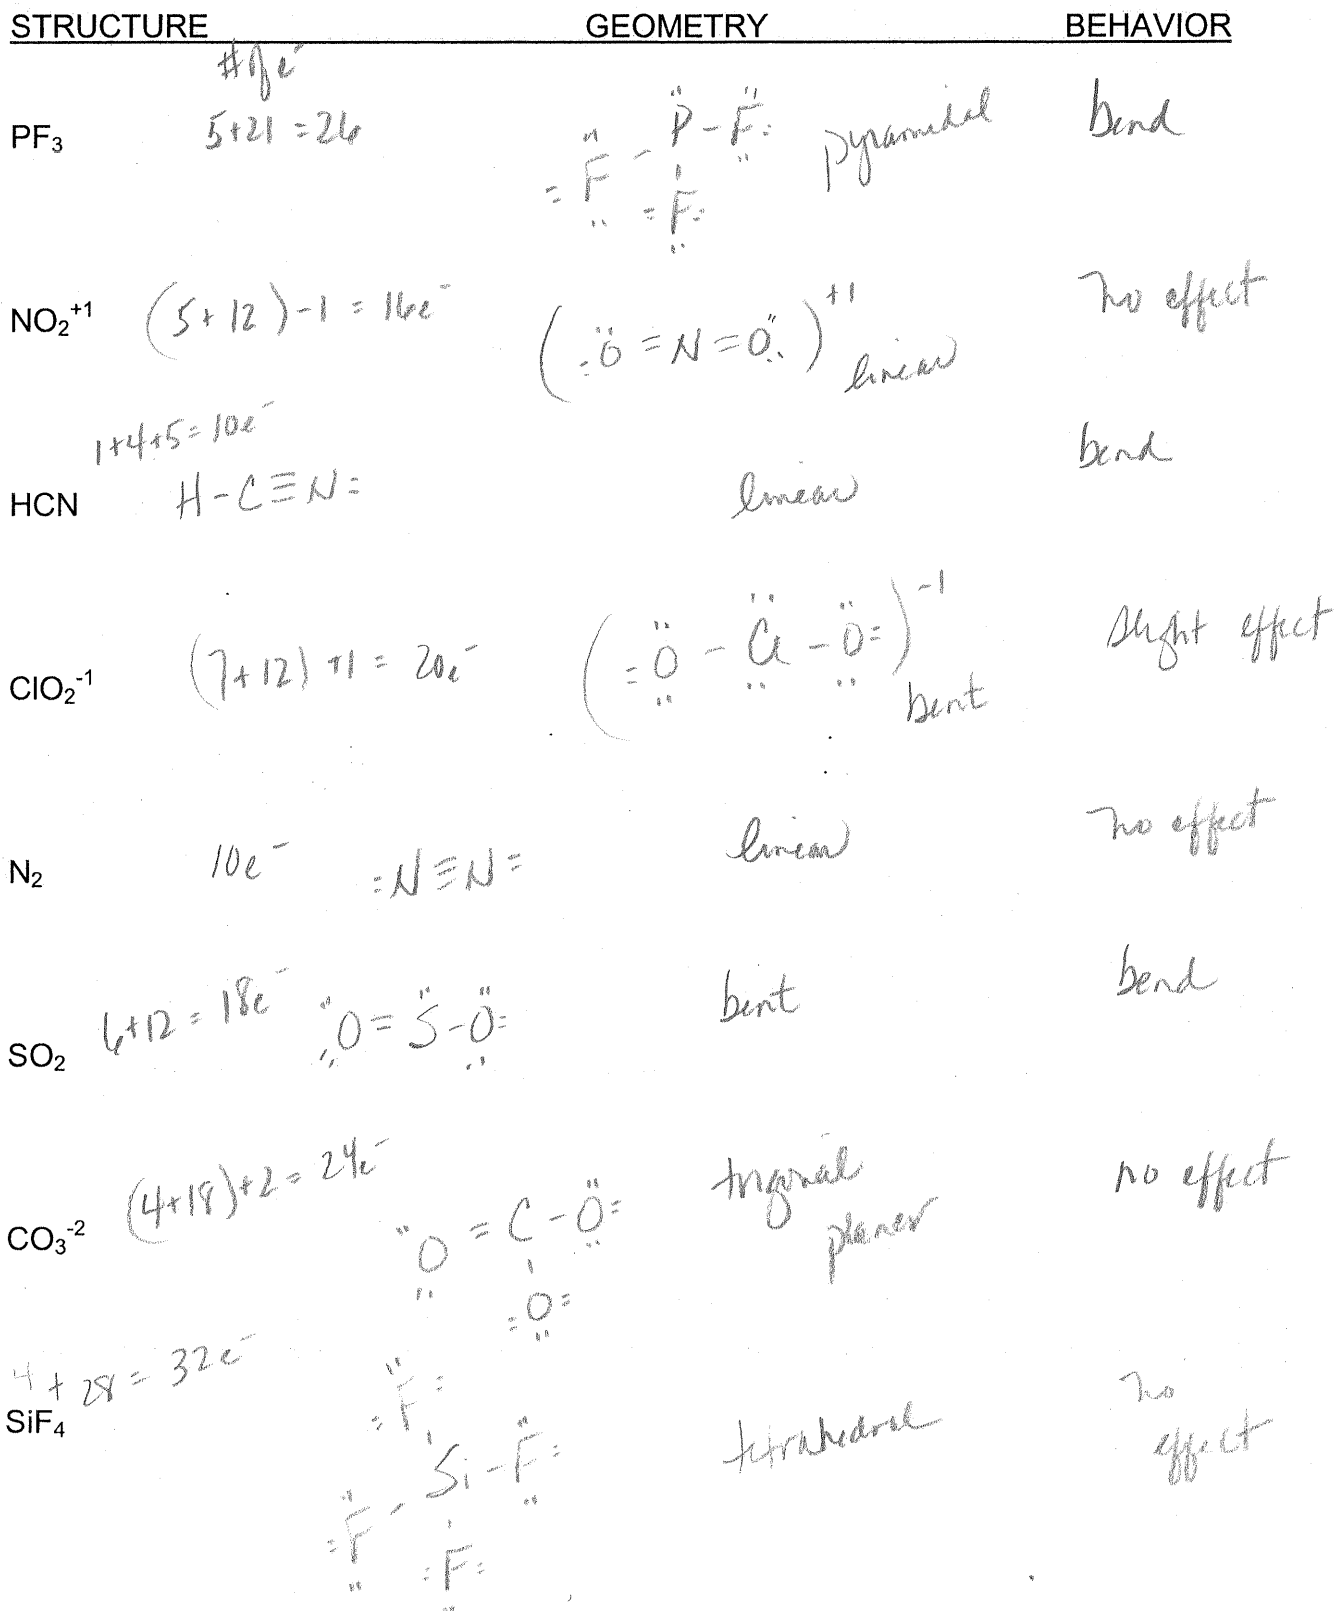 STRUCTURE GEOMETRY BEHAVIOR
# of e⁻
PF₃ 5+21 = 26 pyramidal bend
:F̈ - P̈ - F̈:
:F:
NO₂⁺¹ (5+12)-1 = 16e⁻ (:Ö = N = Ö:)⁺¹ linear no effect
1+4+5 = 10e⁻
HCN H-C≡N: linear bend
ClO₂⁻¹ (7+12)+1 = 20e⁻ (:Ö - C̈l - Ö:)⁻¹ bent slight effect
N₂ 10e⁻ :N≡N: linear no effect
SO₂ 6+12 = 18e⁻ Ö = S̈ - Ö: bent bend
CO₃⁻² (4+18)+2 = 24e⁻ trigonal planer no effect
Ö = C - Ö:
:O:
4+28 = 32e⁻
SiF₄ tetrahedral no effect
:F̈:
:F̈ - Si - F̈:
:F: